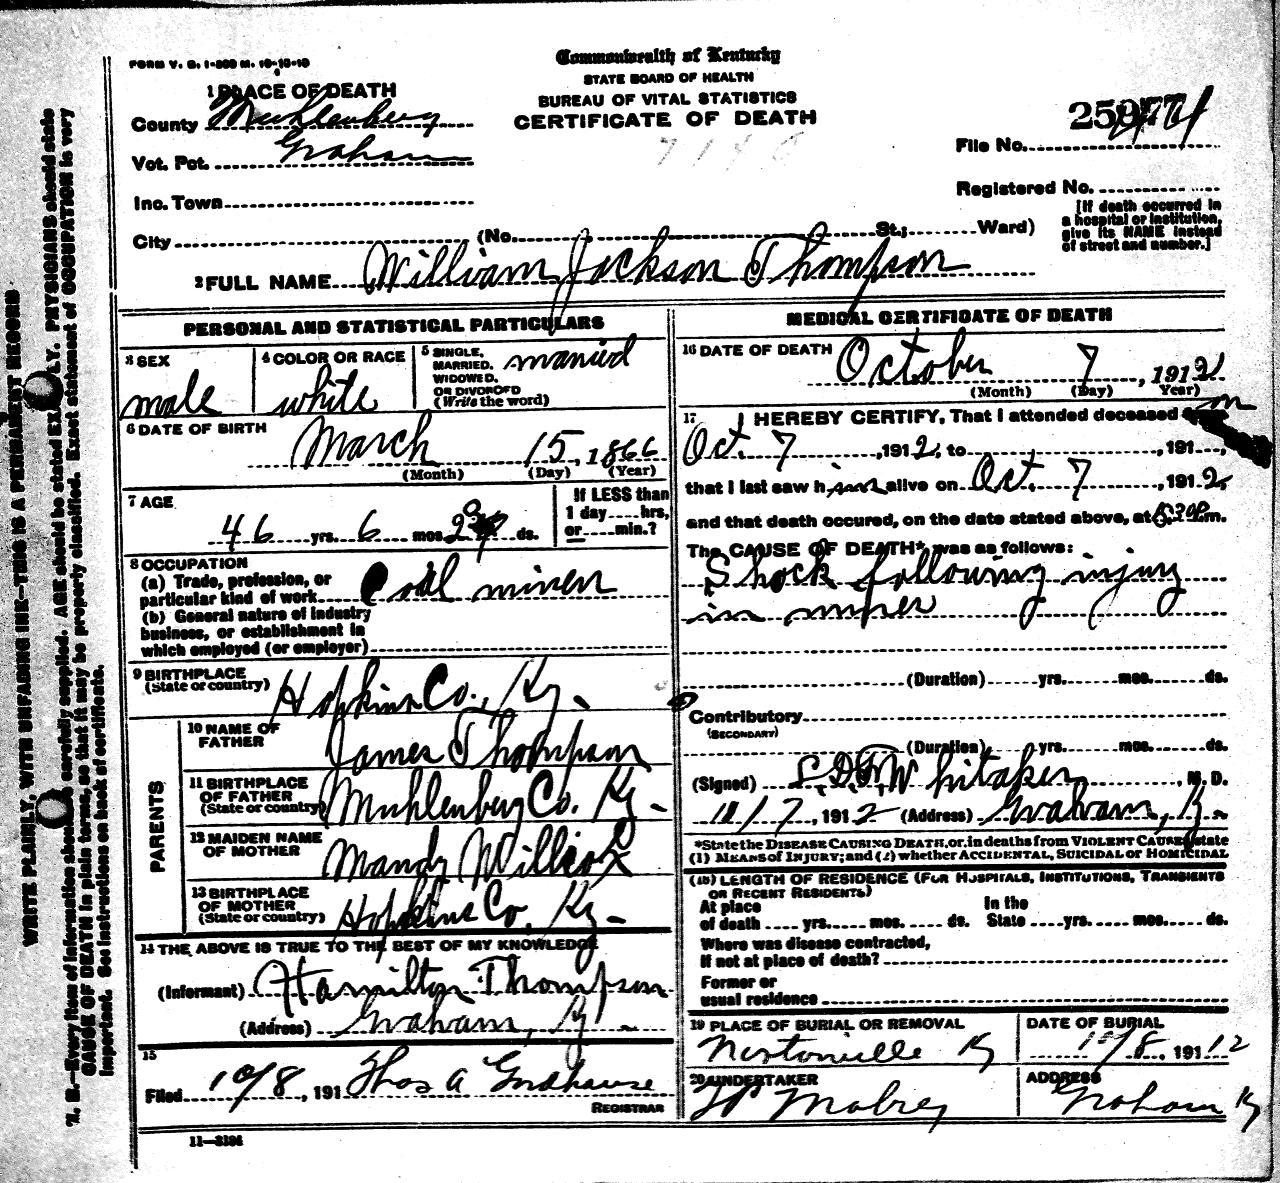 FORM V. S. 1-500 M. 10-10-10
Commonwealth of Kentucky
STATE BOARD OF HEALTH
BUREAU OF VITAL STATISTICS
CERTIFICATE OF DEATH
1 PLACE OF DEATH
County Muhlenberg
Vot. Pct. Graham
Inc. Town
City (No. St.; Ward)
File No.
Registered No.
[If death occurred in
a hospital or institution,
give its NAME instead
of street and number.]
2 FULL NAME William Jackson Thompson
PERSONAL AND STATISTICAL PARTICULARS
3 SEX
male
4 COLOR OR RACE
white
5 SINGLE,
MARRIED,
WIDOWED,
OR DIVORCED
(Write the word)
married
6 DATE OF BIRTH
March 15, 1866
(Month) (Day) (Year)
7 AGE
46 yrs. 6 mos. ds.
If LESS than
1 day hrs,
or min.?
8 OCCUPATION
(a) Trade, profession, or
particular kind of work Coal miner
(b) General nature of industry
business, or establishment in
which employed (or employer)
9 BIRTHPLACE
(State or country) Hopkins Co., Ky.
PARENTS
10 NAME OF
FATHER James Thompson
11 BIRTHPLACE
OF FATHER
(State or country) Muhlenberg Co. Ky.
12 MAIDEN NAME
OF MOTHER Mandy Willcox
13 BIRTHPLACE
OF MOTHER
(State or country) Hopkins Co. Ky.
14 THE ABOVE IS TRUE TO THE BEST OF MY KNOWLEDGE
(Informant) Hamilton Thompson
(Address) Graham, Ky.
15
Filed 10/8, 191 Thos A
REGISTRAR
11—3194
MEDICAL CERTIFICATE OF DEATH
16 DATE OF DEATH October 7, 1912
(Month) (Day) Year)
17 I HEREBY CERTIFY, That I attended deceased on
Oct. 7, 1912, to , 191 ,
that I last saw him alive on Oct. 7, 1912,
and that death occured, on the date stated above, at m.
The CAUSE OF DEATH* was as follows:
Shock following injury
in mines
(Duration) yrs. mos. ds.
Contributory
(SECONDARY)
(Duration) yrs. mos. ds.
(Signed) Whitaker, M. D.
11/7, 1912 (Address) Graham, Ky.
*State the DISEASE CAUSING DEATH, or, in deaths from VIOLENT CAUSES, state
(1) MEANS of INJURY; and (2) whether ACCIDENTAL, SUICIDAL or HOMICIDAL
(18) LENGTH OF RESIDENCE (FOR HOSPITALS, INSTITUTIONS, TRANSIENTS
OR RECENT RESIDENTS)
At place
of death yrs. mos. ds.
In the
State yrs. mos. ds.
Where was disease contracted,
If not at place of death?
Former or
usual residence
19 PLACE OF BURIAL OR REMOVAL
Nortonville Ky
DATE OF BURIAL
10/8, 19112
20 UNDERTAKER
Mobrey
ADDRESS
Graham Ky
WRITE PLAINLY, WITH UNFADING INK—THIS IS A PERMANENT RECORD
N. B.—Every item of information should be carefully supplied. AGE should be stated EXACTLY. PHYSICIANS should state
CAUSE OF DEATH in plain terms, so that it may be properly classified. Exact statement of OCCUPATION is very
important. See instructions on back of certificate.